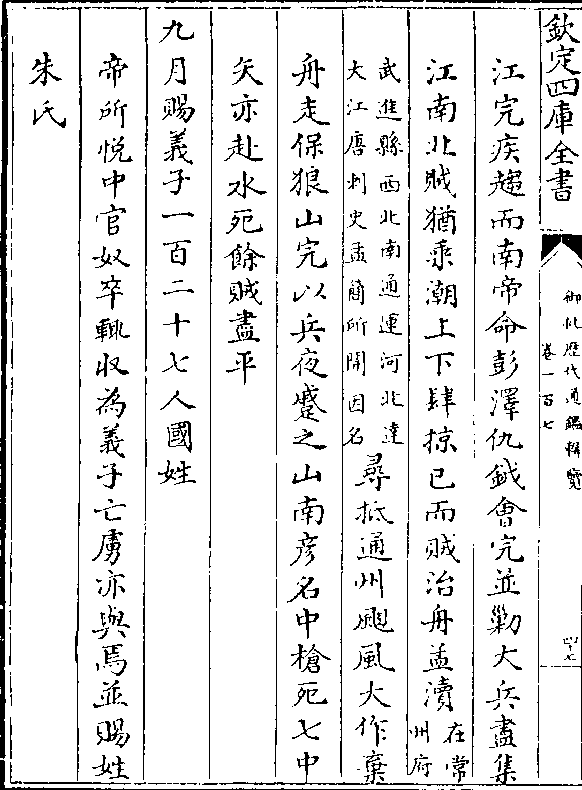 欽定四庫全書
御批歴代通鑑輯覽
卷一百七
四十七
江完疾趨而南帝命彭澤仇鉞會完並勦大兵盡集
江南北賊猶乗潮上下肆掠已而賊治舟孟瀆
在常
州府
武進縣西北南通運河北達
大江唐刺史孟簡所開因名
尋抵通州颶風大作棄
舟走保狼山完以兵夜蹙之山南彦名中槍死七中
矢亦赴水死餘賊盡平
九月賜義子一百二十七人國姓
帝所悦中官奴卒輒収為義子亡虜亦與焉並賜姓
朱氏